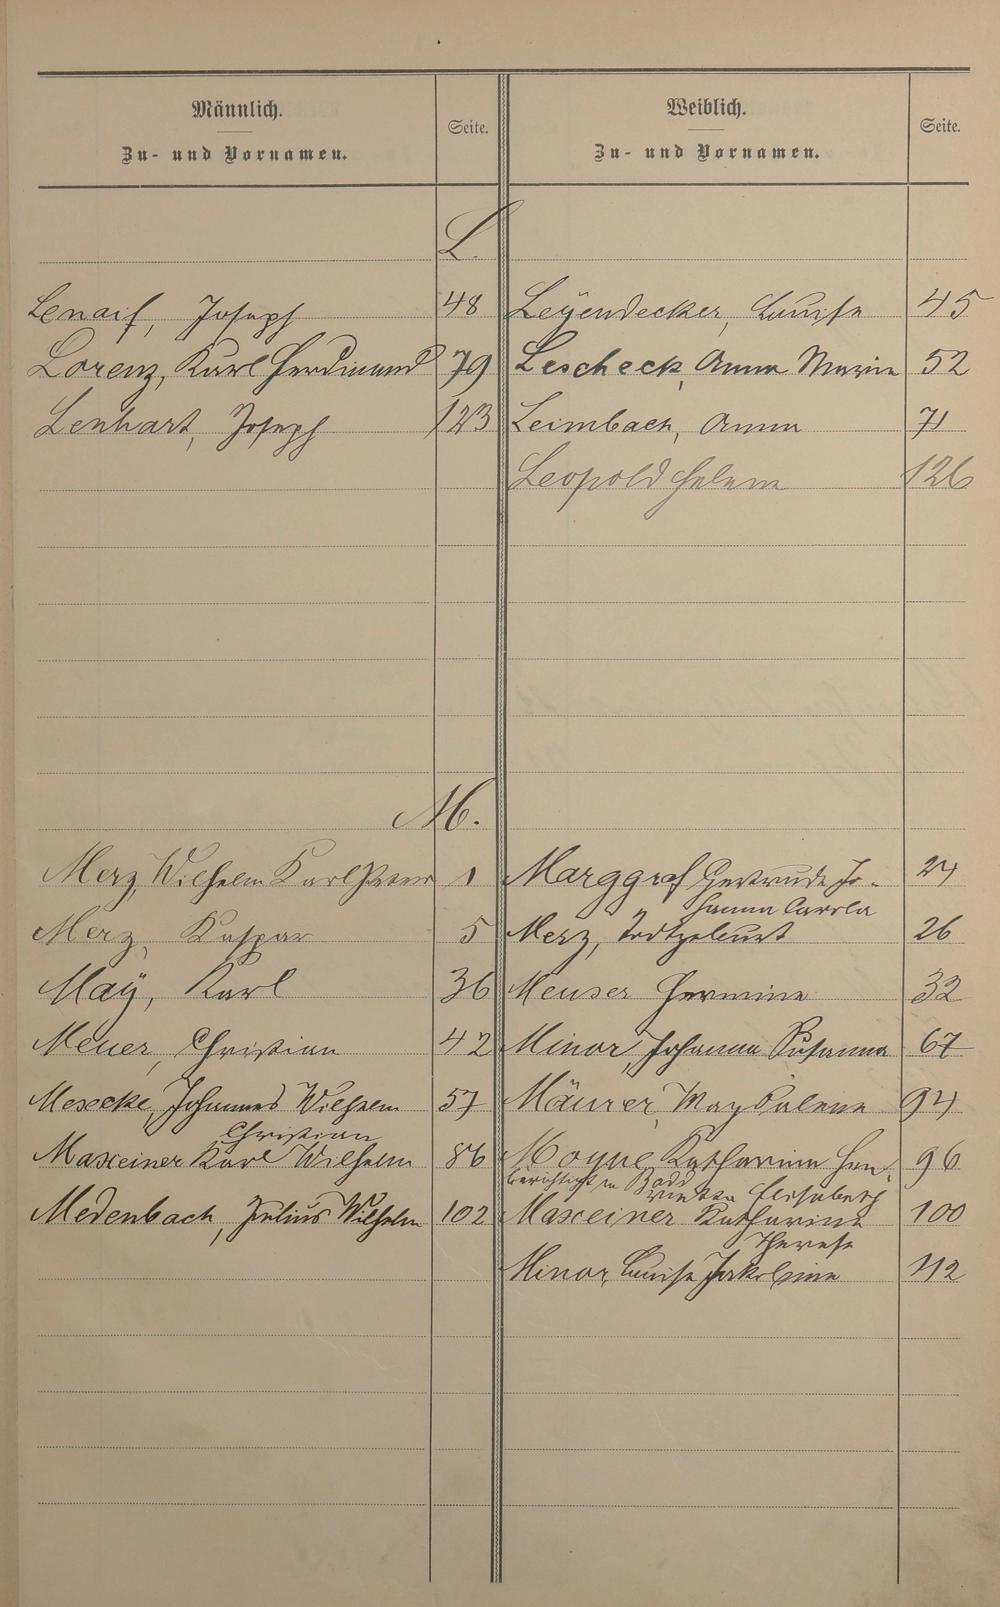 Männlich.
Zu- und Vornamen.
Seite.
Weiblich.
Zu- und Vornamen.
Seite.
L.
Lenaif, Joseph 48 Leÿendecker, Luise 45
Lorenz, Karl Ferdinand 79 Lescheck, Anna Maria 52
Lenhart, Joseph 123 Leimbach, Anna 71
Leopold Helene 126
M.
Merz, Wilhelm Karl Peter 1 Marggraf Gertrude Jo- 24
hanna Carola
Merz, Kaspar 5 Merz, 26
Maÿ, Karl 36 Meuser Hermine 32
Meuer, Christian 42 Minor, Johanna Susanna 67
Mesecke, Johannes Wilhelm 57 Mäurer, Magdalene 94
Christian
Maxeiner Karl Wilhelm 86 Moyne Katharina Hen- 96
berichtigt in
riette Elisabeth
Medenbach, Julius Wilhelm 102 Maxeiner Katharina 100
Therese
Minor, Luise Jakobine 112